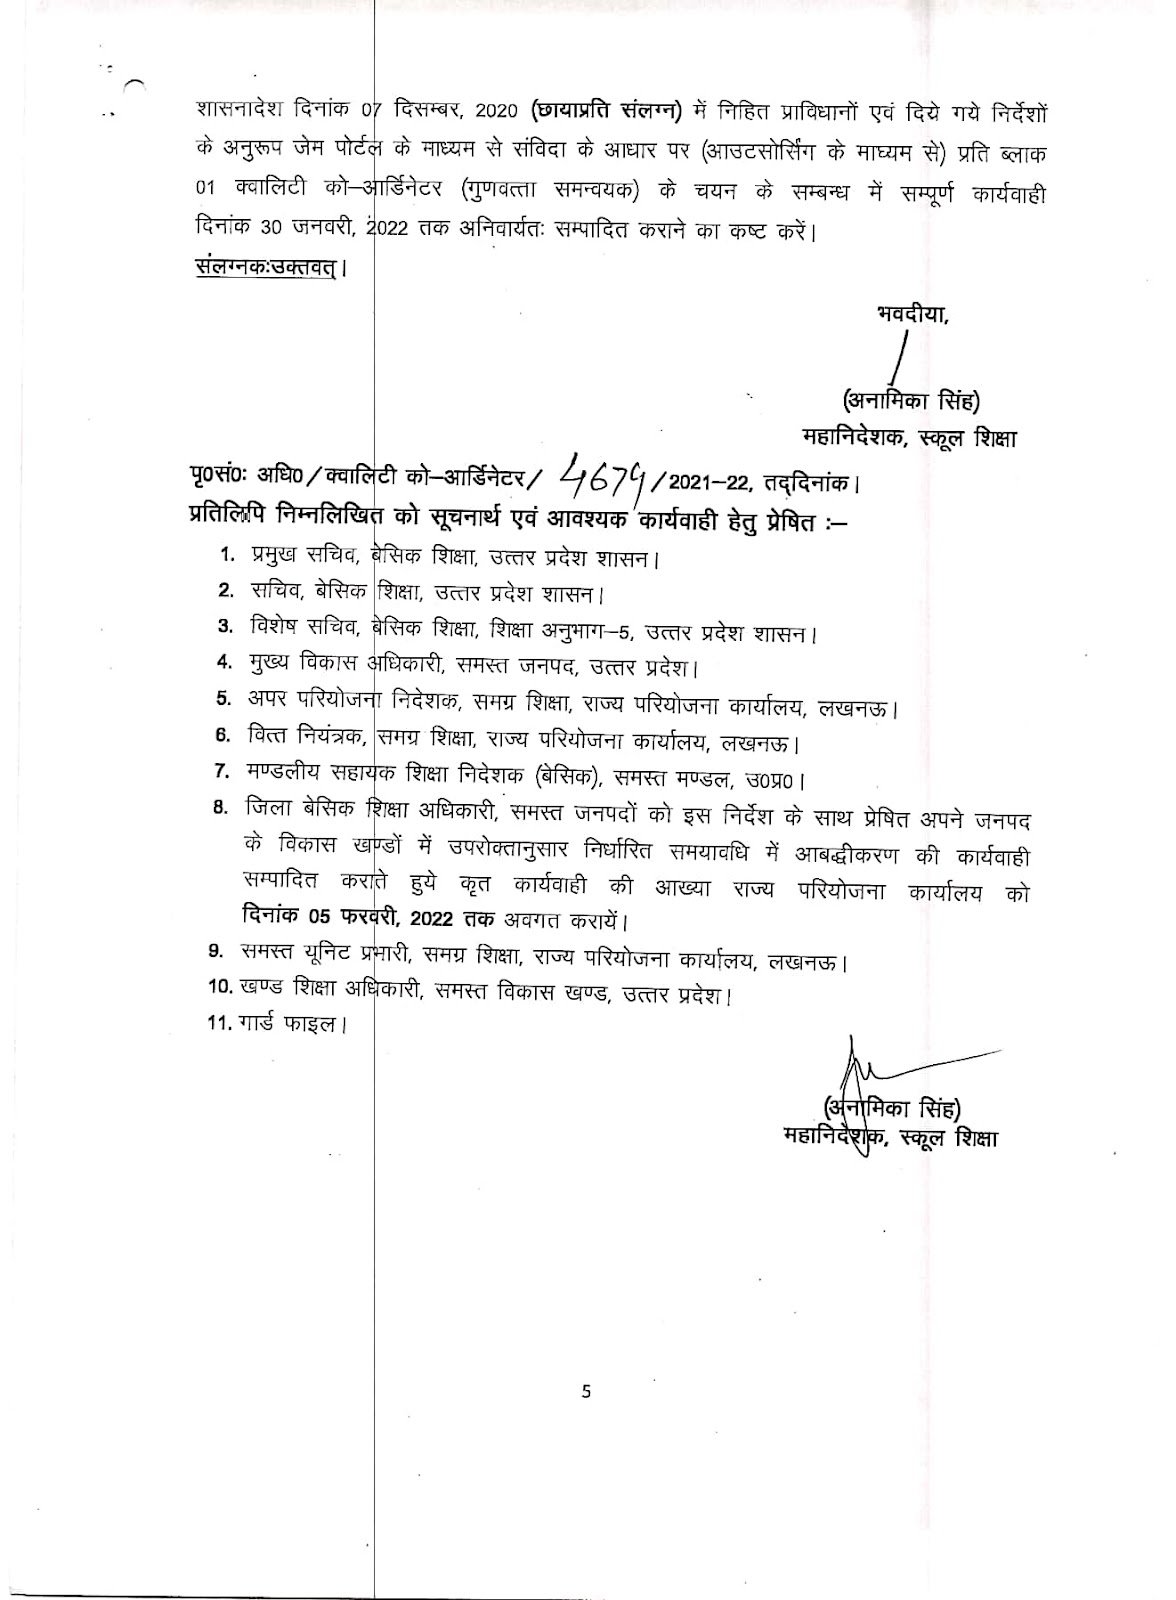 शासनादेश दिनांक 07 दिसम्बर, 2020 (छायाप्रति संलग्न) में निहित प्राविधानों एवं दिये गये निर्देशों
के अनुरूप जेम पोर्टल के माध्यम से संविदा के आधार पर (आउटसोर्सिंग के माध्यम से) प्रति ब्लाक
01 क्वालिटी को–आर्डिनेटर (गुणवत्ता समन्वयक) के चयन के सम्बन्ध में सम्पूर्ण कार्यवाही
दिनांक 30 जनवरी, 2022 तक अनिवार्यतः सम्पादित कराने का कष्ट करें।
संलग्नकःउक्तवत्।
भवदीया,
(अनामिका सिंह)
महानिदेशक, स्कूल शिक्षा
पृ0सं0ः अधि0/क्वालिटी को–आर्डिनेटर/ 4679 /2021–22, तद्दिनांक।
प्रतिलिपि निम्नलिखित को सूचनार्थ एवं आवश्यक कार्यवाही हेतु प्रेषित :–
1. प्रमुख सचिव, बेसिक शिक्षा, उत्तर प्रदेश शासन।
2. सचिव, बेसिक शिक्षा, उत्तर प्रदेश शासन।
3. विशेष सचिव, बेसिक शिक्षा, शिक्षा अनुभाग–5, उत्तर प्रदेश शासन।
4. मुख्य विकास अधिकारी, समस्त जनपद, उत्तर प्रदेश।
5. अपर परियोजना निदेशक, समग्र शिक्षा, राज्य परियोजना कार्यालय, लखनऊ।
6. वित्त नियंत्रक, समग्र शिक्षा, राज्य परियोजना कार्यालय, लखनऊ।
7. मण्डलीय सहायक शिक्षा निदेशक (बेसिक), समस्त मण्डल, उ0प्र0।
8. जिला बेसिक शिक्षा अधिकारी, समस्त जनपदों को इस निर्देश के साथ प्रेषित अपने जनपद
के विकास खण्डों में उपरोक्तानुसार निर्धारित समयावधि में आबद्धीकरण की कार्यवाही
सम्पादित कराते हुये कृत कार्यवाही की आख्या राज्य परियोजना कार्यालय को
दिनांक 05 फरवरी, 2022 तक अवगत करायें।
9. समस्त यूनिट प्रभारी, समग्र शिक्षा, राज्य परियोजना कार्यालय, लखनऊ।
10. खण्ड शिक्षा अधिकारी, समस्त विकास खण्ड, उत्तर प्रदेश।
11. गार्ड फाइल।
(अनामिका सिंह)
महानिदेशक, स्कूल शिक्षा
5